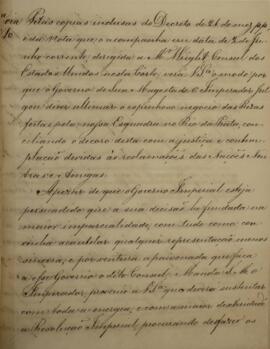 Pelas copias inclusas do Decreto de 26 do mez pp.
e da Nota que o acompanha em data de 2 de Ju-
nho corrente, dirigida a Mr. Wright Consul dos
Estados Unidos nesta Corte, verá V.S.ª o modo por-
que o Governo de Sua Magestade o Imperador Jul-
gou dever ultimar o espinhoso negocio das Prezas
feitas pela nossa Esquadra no Rio da Prata, con-
ciliando o decoro desta com a justiça e contem-
plação devidas ás reclamações das Nações Neu-
tras e Amigas.
Apezar de que o Governo Imperial esteja
persuadido que a sua decisão he fundada na
maior imparcialidade, com tudo como con-
venha acautelar qualquer representação menos
sincera, e por ventura apaixonada que faça
ao seu Governo o dito Consul; Manda S. M. o
Imperador, prevenir a V.S.ª que deverá sustentar
com toda a energia, e com a maior dexteridade
a Resolução Imperial, procurando desfazer os